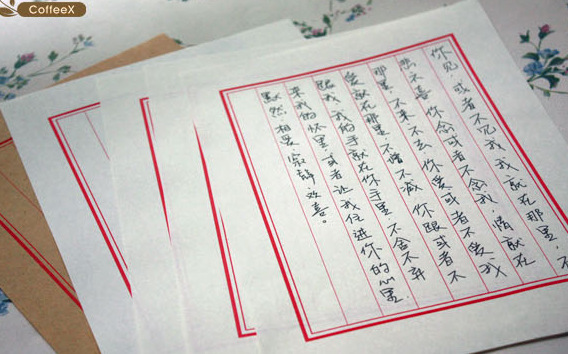 CoffeeX
你见,或者不见我 我就在那里,不
悲不喜 你念或者不念我 情就在
那里 不来不去 你爱或者不爱我
爱就在那里 不增不减 你跟或者不
跟我 我的手就在你手里 不舍不弃
来我的怀里,或者让我住进你的心里.
默然 相爱 寂静 欢喜。